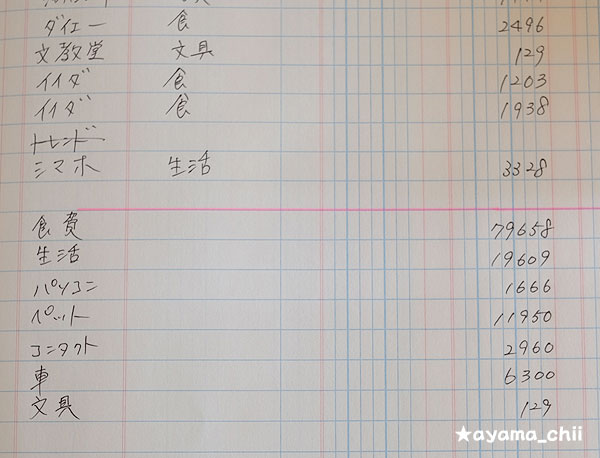 ダイエー 食 2496
文教堂 文具 129
イイダ 食 1203
イイダ 食 1938
トレンド
シマホ 生活 3328
食費 79658
生活 19609
パソコン 1666
ペット 11950
コンタクト 2960
車 6300
文具 129
★ayama_chii